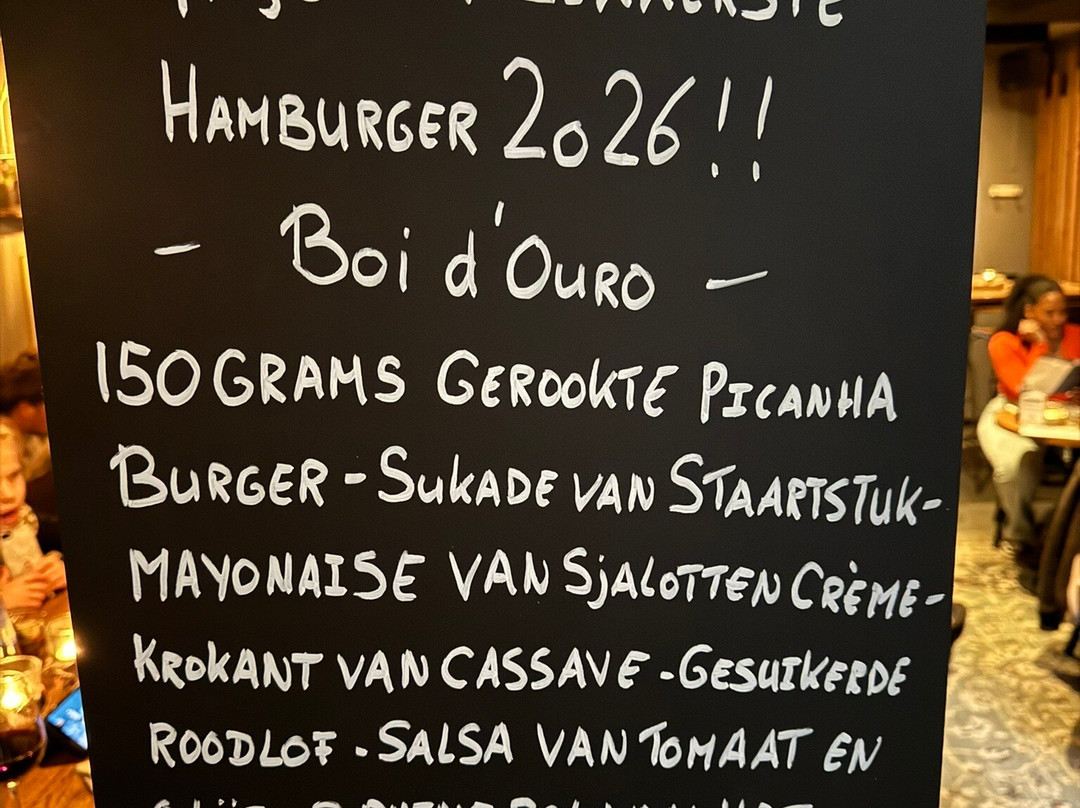 HAMBURGER 2026!!
- Boi d'OURO -
150 GRAMS GEROOKTE PICANHA
BURGER - SUKADE VAN STAARTSTUK-
MAYONAISE VAN SJALOTTEN CRÈME-
KROKANT VAN CASSAVE - GESUIKERDE
ROODLOF - SALSA VAN TOMAAT EN